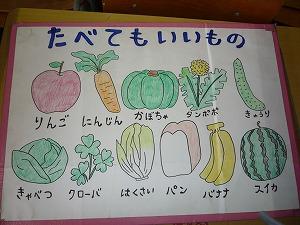 たべてもいいもの
りんご にんじん かぼちゃ タンポポ きゅうり
きゃべつ クローバ はくさい パン バナナ スイカ